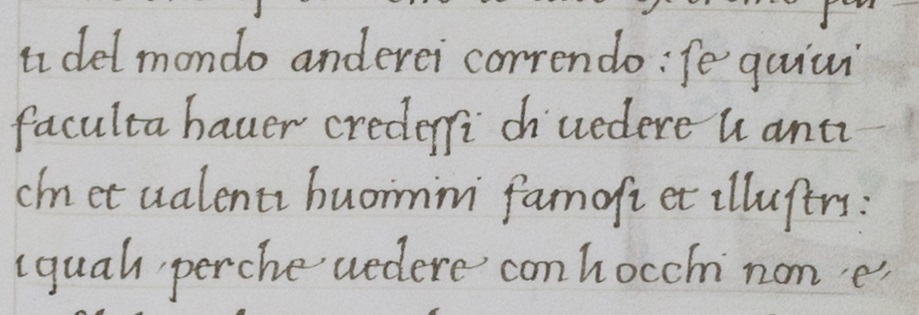 ti del mondo anderei correndo : se quiui
faculta hauer credessi di uedere li anti-
chi et ualenti huomini famosi et illustri:
i quali perche uedere con li occhi non e